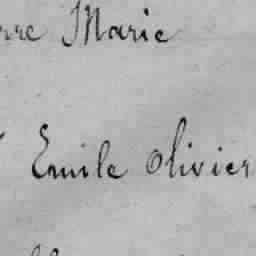 rre Marie
Emile Olivier